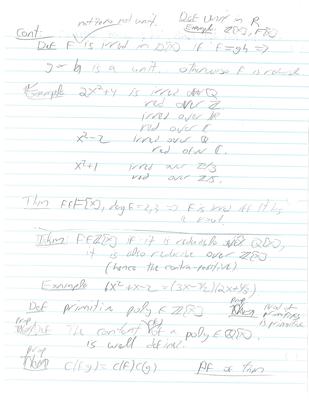 not zero, not unit.
Def unit in R
Example. Z[x], F[x]
Cont.
Def F is irred in D[x] if F=gh ⇒
g or h is a unit. otherwise F is reducible
Example 2x²+4 is irred over Q
red over Z
irred over R
red over C
x²-2 irred over Q
red over R.
x²+1 irred over Z/3
red over Z/5.
Thm F∈F[x], deg F=2,3 ⇒ F is irred iff it has
a root.
Thm F∈Z[x] if it is reducible over Q[x],
it is also reducible over Z[x]
(hence the contra-positive)
Example 6x²+x-2 = (3x-3/2)(2x+4/3)
Def primitive poly ∈ Z[x]
Prop Thm Prod of primitives is primitive
Prop The content of a poly ∈ Q[x]
is well define.
Prop Thm C(Fg) = C(F)C(g)
PF of Thm